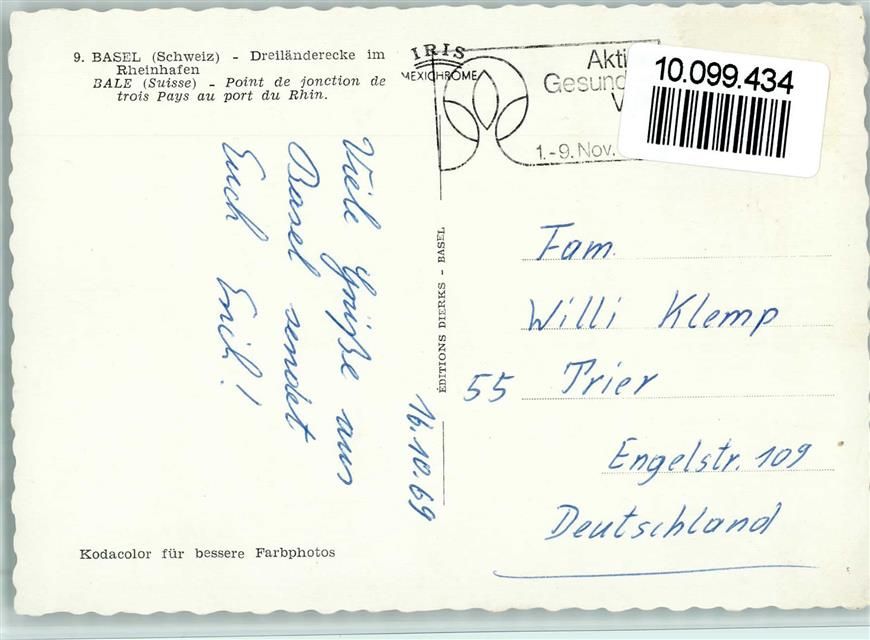 9. BASEL (Schweiz) - Dreiländerecke im
Rheinhafen
BALE (Suisse) - Point de jonction de
trois Pays au port du Rhin.
IRIS
MEXICHROME
Akti
Gesund
1.-9. Nov.
10.099.434
Viele Grüße aus
Basel sendet
Euch Erich!
16.10.69
EDITIONS DIERKS - BASEL
Fam.
Willi Klemp
55 Trier
Engelstr. 109
Deutschland
Kodacolor für bessere Farbphotos